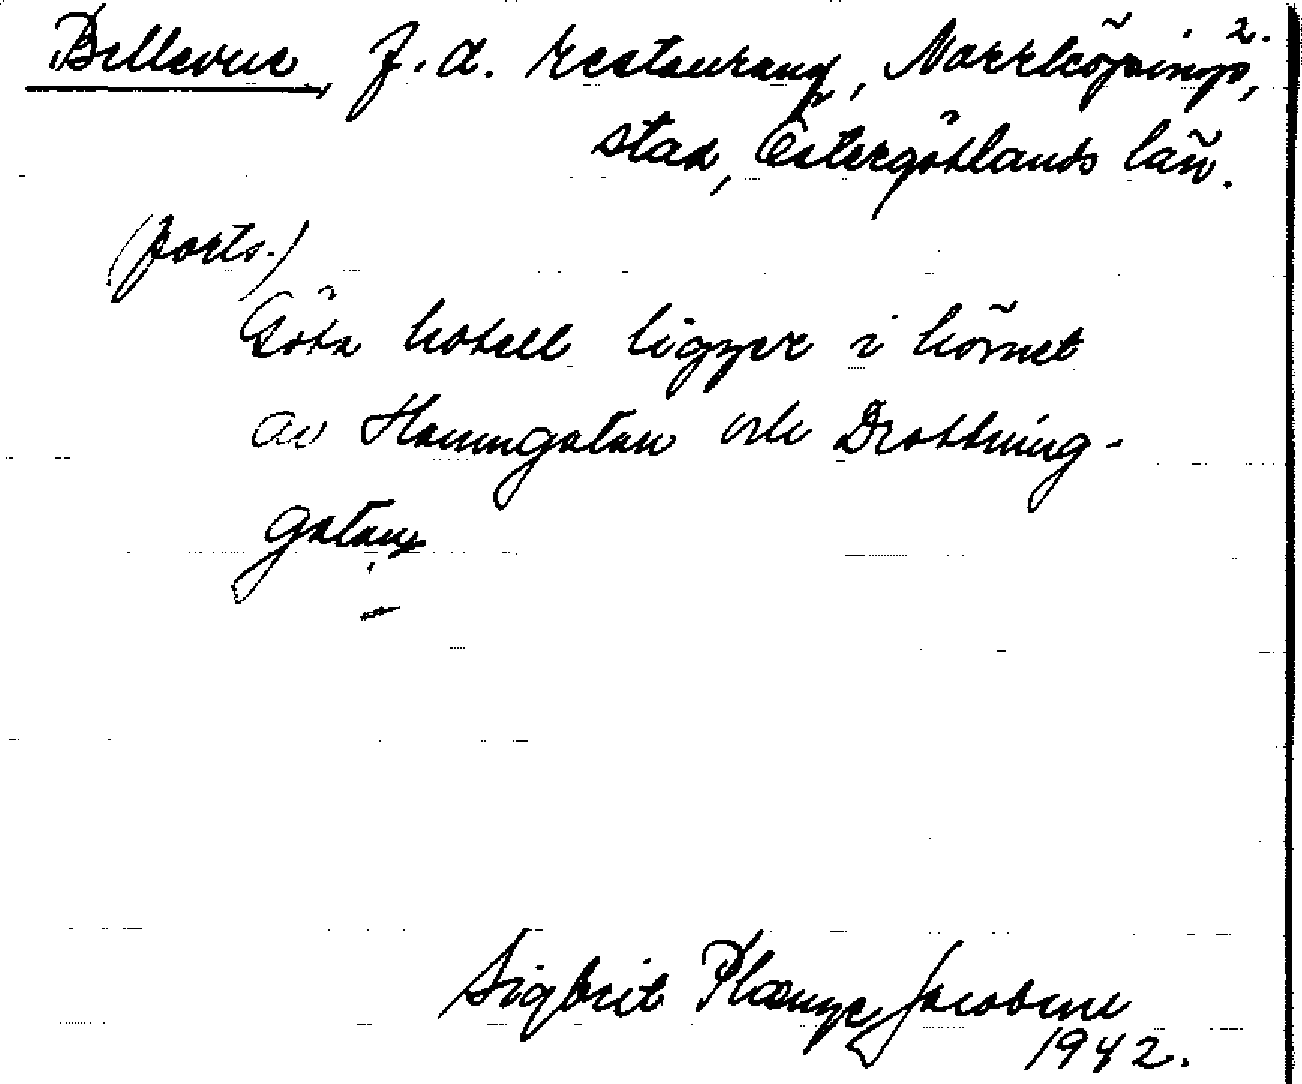 2.
Bellevue, f.d. restaurang, Norrköpings,
stad, Östergötlands län.
(forts.)
Göta hotell ligger i hörnet
av Hamngatan och Drottning-
gatan.
Sigbrit Plænge Jacobson
1942.